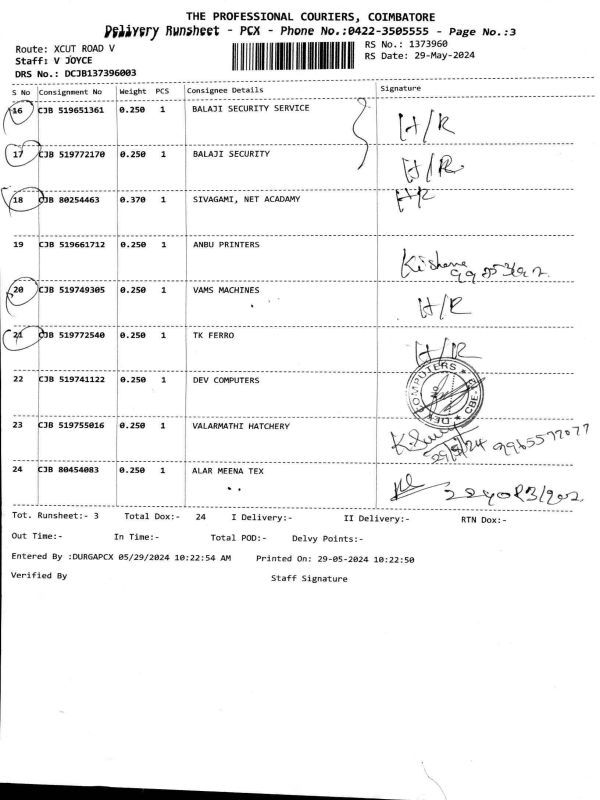 THE PROFESSIONAL COURIERS, COIMBATORE
Delivery Runsheet - PCX - Phone No.:0422-3505555 - Page No.:3
Route: XCUT ROAD V
RS No.: 1373960
Staff: V JOYCE
RS Date: 29-May-2024
DRS No.: DCJB137396003
S No Consignment No Weight PCS Consignee Details Signature
16 CJB 519651361 0.250 1 BALAJI SECURITY SERVICE H/R
17 CJB 519772170 0.250 1 BALAJI SECURITY H/R
18 CJB 80254463 0.370 1 SIVAGAMI, NET ACADAMY H/R
19 CJB 519661712 0.250 1 ANBU PRINTERS
20 CJB 519749305 0.250 1 VAMS MACHINES H/R
21 CJB 519772540 0.250 1 TK FERRO H/R
22 CJB 519741122 0.250 1 DEV COMPUTERS
23 CJB 519755016 0.250 1 VALARMATHI HATCHERY
24 CJB 80454083 0.250 1 ALAR MEENA TEX
Tot. Runsheet:- 3 Total Dox:- 24 I Delivery:- II Delivery:- RTN Dox:-
Out Time:- In Time:- Total POD:- Delvy Points:-
Entered By :DURGAPCX 05/29/2024 10:22:54 AM Printed On: 29-05-2024 10:22:50
Verified By Staff Signature